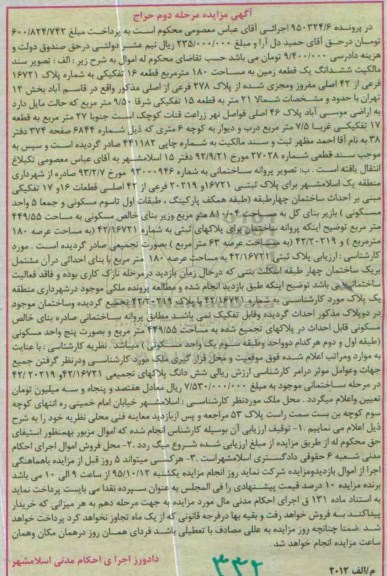 آگهی مزایده مرحله دوم حراج
در پرونده ۹۵۰۳۲۴/۶ اجرائی آقای عباس معصومی محکوم است به پرداخت مبلغ ۶۰۰/۸۲۴/۷۴۲
تومان درحق آقای حمید دل آرا و مبلغ ۲۳۵/۰۰۰/۰۰۰ ریال نیم عشر دولتی درحق صندوق دولت و
هزینه دادرسی ۹/۴۰۰/۰۰۰ تومان می باشد حسب تقاضای محکوم له اموال به شرح زیر : الف : تصویر سند
مالکیت ششدانگ یک قطعه زمین به مساحت ۱۸۰ مترمربع قطعه ۱۶ تفکیکی به شماره پلاک ۱۶۷۲۱
فرعی از ۴۲ اصلی مفروز ومجزی شده از پلاک ۲۷۸ فرعی از اصلی مذکور واقع در قاسم آباد بخش ۱۲
تهران با حدود و مشخصات شمالا ۲۱ متر به قطعه ۱۵ تفکیکی شرقا ۹/۵۰ متر مربع که حالت مایل دارد
به اراضی موسی آباد پلاک ۴۶ اصلی فواصل نهر زراعت قنات کوچک است جنوبا ۲۷ متر مربع به قطعه
۱۷ تفکیکی غربا ۷/۵ متر مربع درب و دیوار به کوچه ۶ متری که ذیل شماره ۶۸۴۴ صفحه ۳۷۴ دفتر
۳۸ به نام آقا احمد مظهر ثبت و سند مالکیت به شماره چاپی ۴۴۱۱۸۲ صادر گردیده است و سپس به
موجب سند قطعی شماره ۲۷۰۲۸ مورخ ۹۲/۹/۲۱ دفتر ۱۵ اسلامشهر به آقای عباس معصومی تکبلاغ
انتقال یافته است . ب: تصویر پروانه ساختمانی به شماره ۹۳۰۰۰۹۴۶ مورخ ۹۳/۲/۷ صادره از شهرداری
منطقه یک اسلامشهر برای پلاک ثبتی ۱۶۷۲۱و ۲۰۲۱۹ فرعی از ۴۲ اصلی قطعات ۱۶و ۱۷ تفکیکی
مبنی بر احداث ساختمان چهارطبقه (طبقه همکف پارکینگ ، طبقات اول تاسوم مسکونی و جمعا ۵ واحد
مسکونی ) بازیر بنای کل به مساحت ۶۰۴ متر مربع وزیر بنای خالص مسکونی به مساحت ۴۴۹/۵۵
متر مربع توضیح اینکه پروانه ساختمان برای پلاکهای ثبتی به شماره ۴۲/۱۶۷۲۱ (به مساحت عرصه ۱۸۰
مترمربع ) و ۴۲/۲۰۲۱۹ (به مساحت عرصه ۶۳ متر مربع ) بصورت تجمیعی صادر گردیده است . مورد
کارشناسی : ارزیابی پلاک ثبتی ۴۲/۱۶۷۲۱ به مساحت عرصه ۱۸۰ متر مربع با بنای احداثی درآن مشتمل
بریک ساختمان چهار طبقه اسکلت بتنی که درحال زمان بازدید درمرحله نازک کاری بوده و فاقد فعالیت
ساختمانی می باشد توضیح اینکه طبق بازدید انجام شده و مطالعه پرونده ملکی موجود درشهرداری منطقه
یک پلاک مورد کارشناسی به شماره ۴۲/۱۶۷۲۱ با پلاک ۴۲/۲۰۲۱۹ تجمیع گردیده وساختمان موجود
در دوپلاک مذکور احداث گردیده وقابل تفکیک نمی باشد مطابق پروانه ساختمانی صادره بنای خالص
مسکونی قابل احداث در پلاکهای تجمیع شده به مساحت ۴۴۹/۵۵ متر مربع و بصورت پنج واحد مسکونی
(طبقه اول و دوم هرکدام دوواحد وطبقه سوم یک واحد مسکونی ) میباشد . نظریه کارشناسی : با عنایت
به موارد ومراتب اعلام شده فوق موقعیت و محل قرار گیری ملک مورد کارشناسی ودرنظر گرفتن جمیع
جهات وعوامل موثر درامر کارشناسی ارزش ریالی شش دانگ پلاکهای تجمیعی ۴۲/۱۶۷۲۱و ۴۲/۲۰۲۱۹
در مرحله ساختمانی موجود به مبلغ ۷/۵۳۰/۰۰۰/۰۰۰ ریال معادل هفتصد و پنجاه و سه میلیون تومان
تعیین واعلام میگردد . محل ملک موردنظر کارشناسی : اسلامشهر خیابان امام خمینی ره انتهای کوچه
سوم کوچه بن بست سمت راست پلاک ۵۳ مراجعه و پس ازبازدید معاینه فنی محلی نظریه خود را به شرح
ذیل اعلام می نماییم ۱- توقیف ارزیابی آن بوسیله کارشناس انجام شده که اموال مزبور بهمنظور استیفای
حق محکوم له از طریق مزایده از مبلغ ارزیابی شده شروع میگ ردد .۲- محل فروش اموال اجرای احکام
مدنی شعبه ۶ حقوقی دادگستری اسلامشهراست ۳- هرکسی میتواند ۵ روز قبل از مزایده باهماهنگی
اجرا از اموال بازدیدومزایده شرکت نماید روز انجام مزایده یکشنبه ۹۵/۱۰/۱۲ از ساعت ۹ الی ۱۰ می باشد
برنده مزایده ۱۰ درصد قیمت پیشنهادی را فی المجلس به عنوان سپرده نقدا می بایست پرداخت نماید
به استناد ماده ۱۳۱ ق اجرای احکام مدنی مال مورد مزایده به جهت مرحله دهم به هر میزانی که خریدار
پیداکند به فروش خواهد رفت و بقیه بها درفرجه قانونی که از یک ماه تجاوز نخواهد کرد پرداخت خواهد
شد .ضمنا چنانچه روز مزایده به عللی مصادف با تعطیلی باشد فردای همان روز درهمان مکان وهمان
ساعت مزایده انجام خواهد شد.
دادورز اجرا ی احکام مدنی اسلامشهر
م/الف ۲۰۱۲
۳۳۲